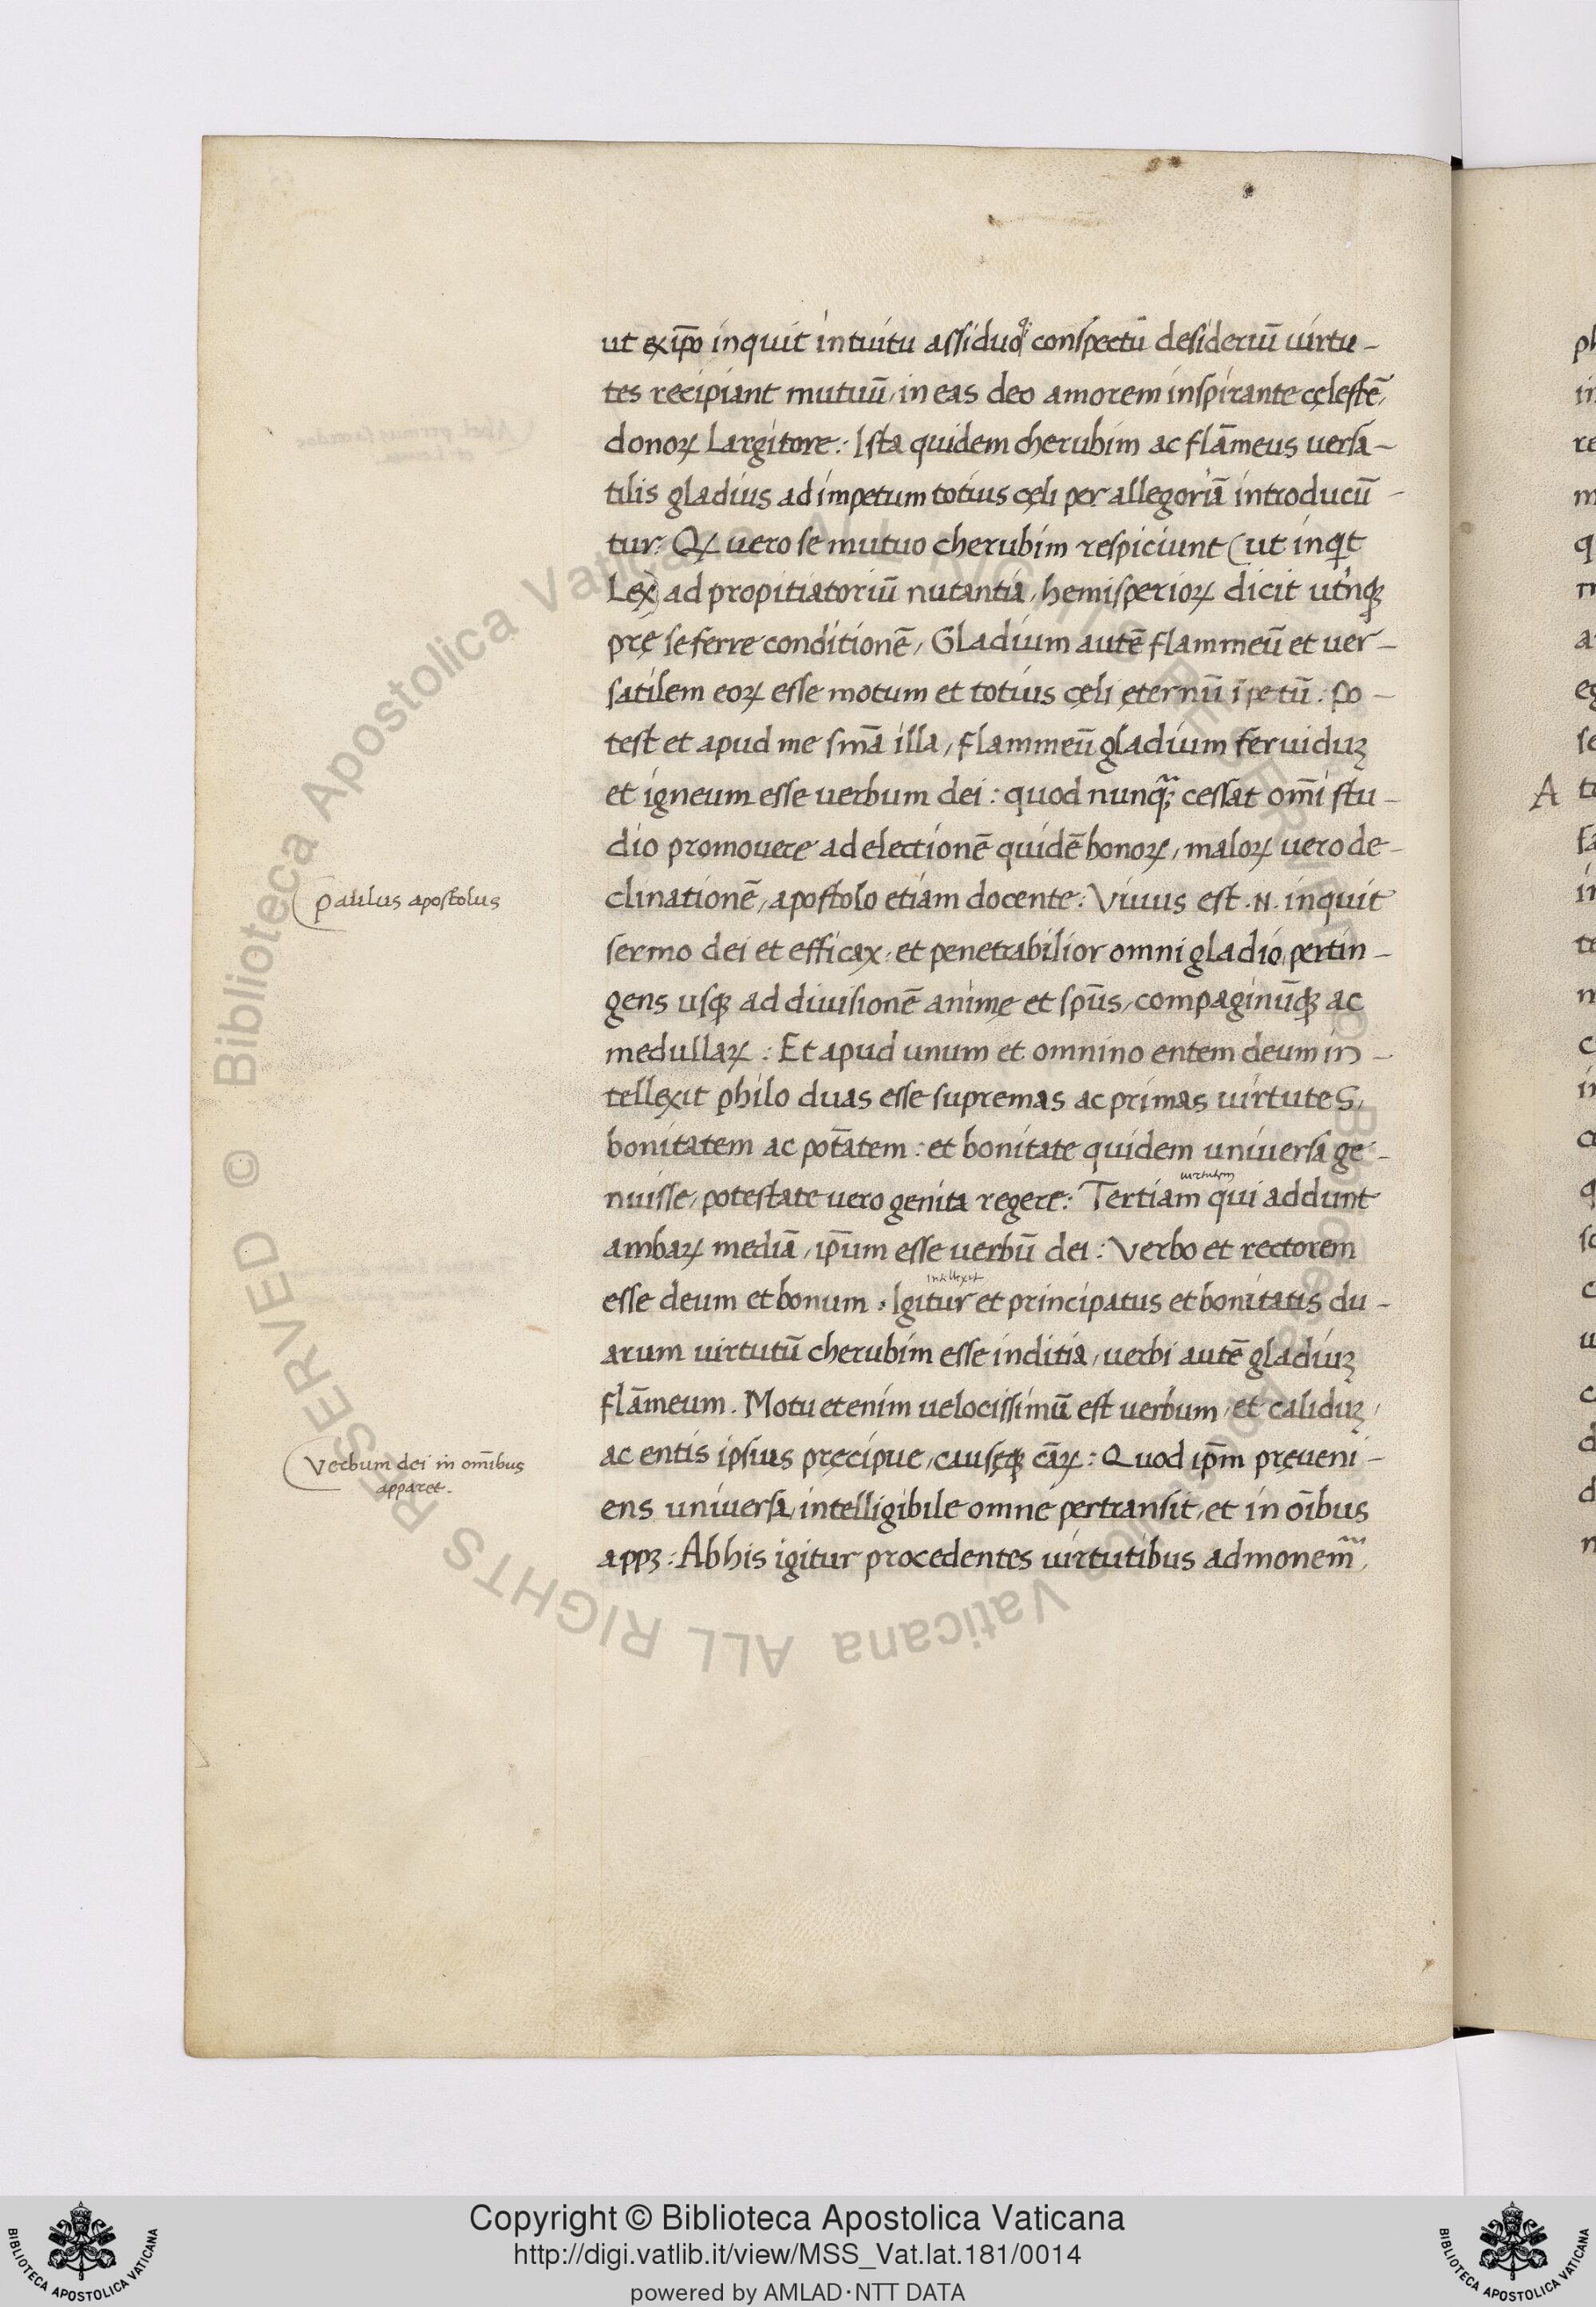 ut ex ip̄o inquit intuitu assiduoq̃ conspectū desideriū uirtu-
tes recipiant mutuū, in eas deo amorem inspirante cęlestē,
donoꝝ Largitore: Ista quidem cherubim ac flāmeus uersa-
tilis gladius ad impetum totius cęli per allegoriā introducū-
tur: Qꝝ uero se mutuo cherubim respiciunt (ut inqt
Lex) ad propitiatoriū nutantia, hemisperioꝝ dicit utrinqꝫ
prę se ferre conditionē, Gladium autē flammeū et uer-
satilem eoꝝ esse motum et totius cęli ęternū īpetū: Po-
test et apud me sm̄a illa, flammeū gladium feruiduꝫ
et igneum esse uerbum dei: quod nunq̃ꝫ cessat om̄i stu-
dio promouere ad electionē quidē bonoꝝ, maloꝝ uero de-
clinationē, apostolo etiam docente: Viuus est .N. inquit
Paulus apostolus
sermo dei et efficax, et penetrabilior omni gladio, pertin-
gens usqꝫ ad diuisionē animę et sp̄us, compaginūqꝫ ac
medullaꝝ: Et apud unum et omnino entem deum in-
tellexit philo duas esse supremas ac primas uirtuteS,
bonitatem ac potātem: et bonitate quidem uniuersa ge-
nuisse, potestate uero genita regere: Tertiam qui addunt
uirtutem
ambaꝝ mediā, ip̄um esse uerbū dei: Verbo et rectorem
esse deum et bonum. Igitur et principatus et bonitatis du-
intellexit
arum uirtutū cherubim esse inditia, uerbi autē gladiuꝫ
flāmeum. Motu etenim uelocissimū est uerbum, et caliduꝫ,
ac entis ipsius pręcipue, causęqꝫ cāꝝ: Quod ip̄m pręueni-
Verbum dei in om̄ibus
apparet.
ens uniuersa, intelligibile omne pertransit, et in oībus
appꝫ: Ab his igitur procedentes uirtutibus admonem̃,
A
© Biblioteca Apostolica Vaticana ALL RIGHTS RESERVED
Copyright © Biblioteca Apostolica Vaticana
http://digi.vatlib.it/view/MSS_Vat.lat.181/0014
powered by AMLAD·NTT DATA
BIBLIOTECA APOSTOLICA VATICANA
BIBLIOTECA APOSTOLICA VATICANA